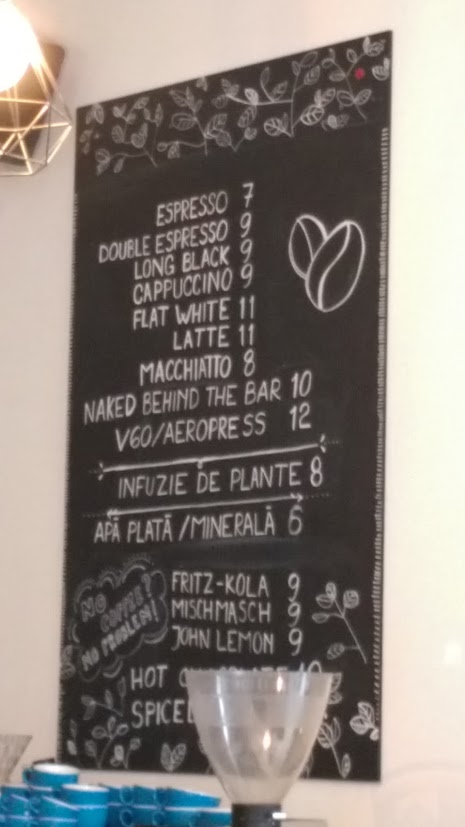 ESPRESSO 7
DOUBLE ESPRESSO 9
LONG BLACK 9
CAPPUCCINO 9
FLAT WHITE 11
LATTE 11
MACCHIATO 8
NAKED BEHIND THE BAR 10
V60/AEROPRESS 12
INFUZIE DE PLANTE 8
APĂ PLATĂ/MINERALĂ 6
NO COFFEE?
NO PROBLEM!
FRITZ-KOLA 9
MISCHMASCH 9
JOHN LEMON 9
HOT